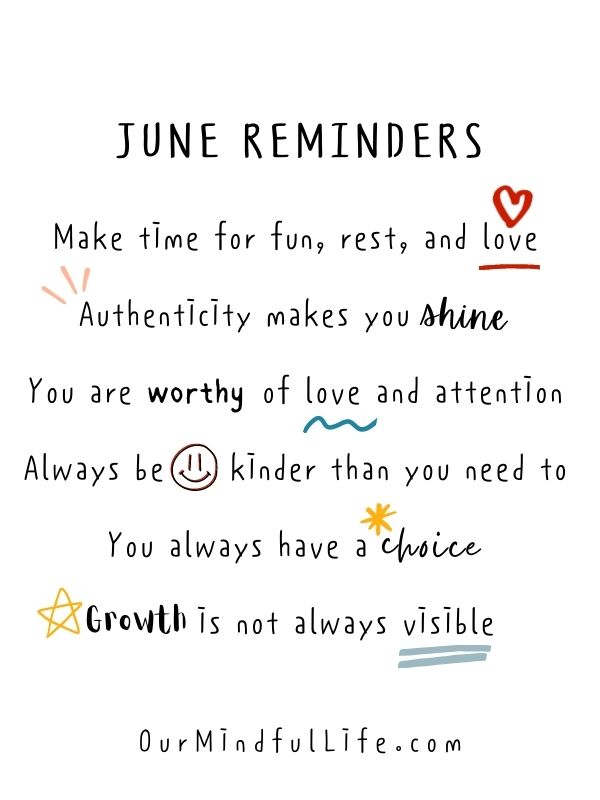 JUNE REMINDERS
Make time for fun, rest, and love
Authenticity makes you shine
You are worthy of love and attention
Always be kinder than you need to
You always have a choice
Growth is not always visible
OurMindfulLife.com